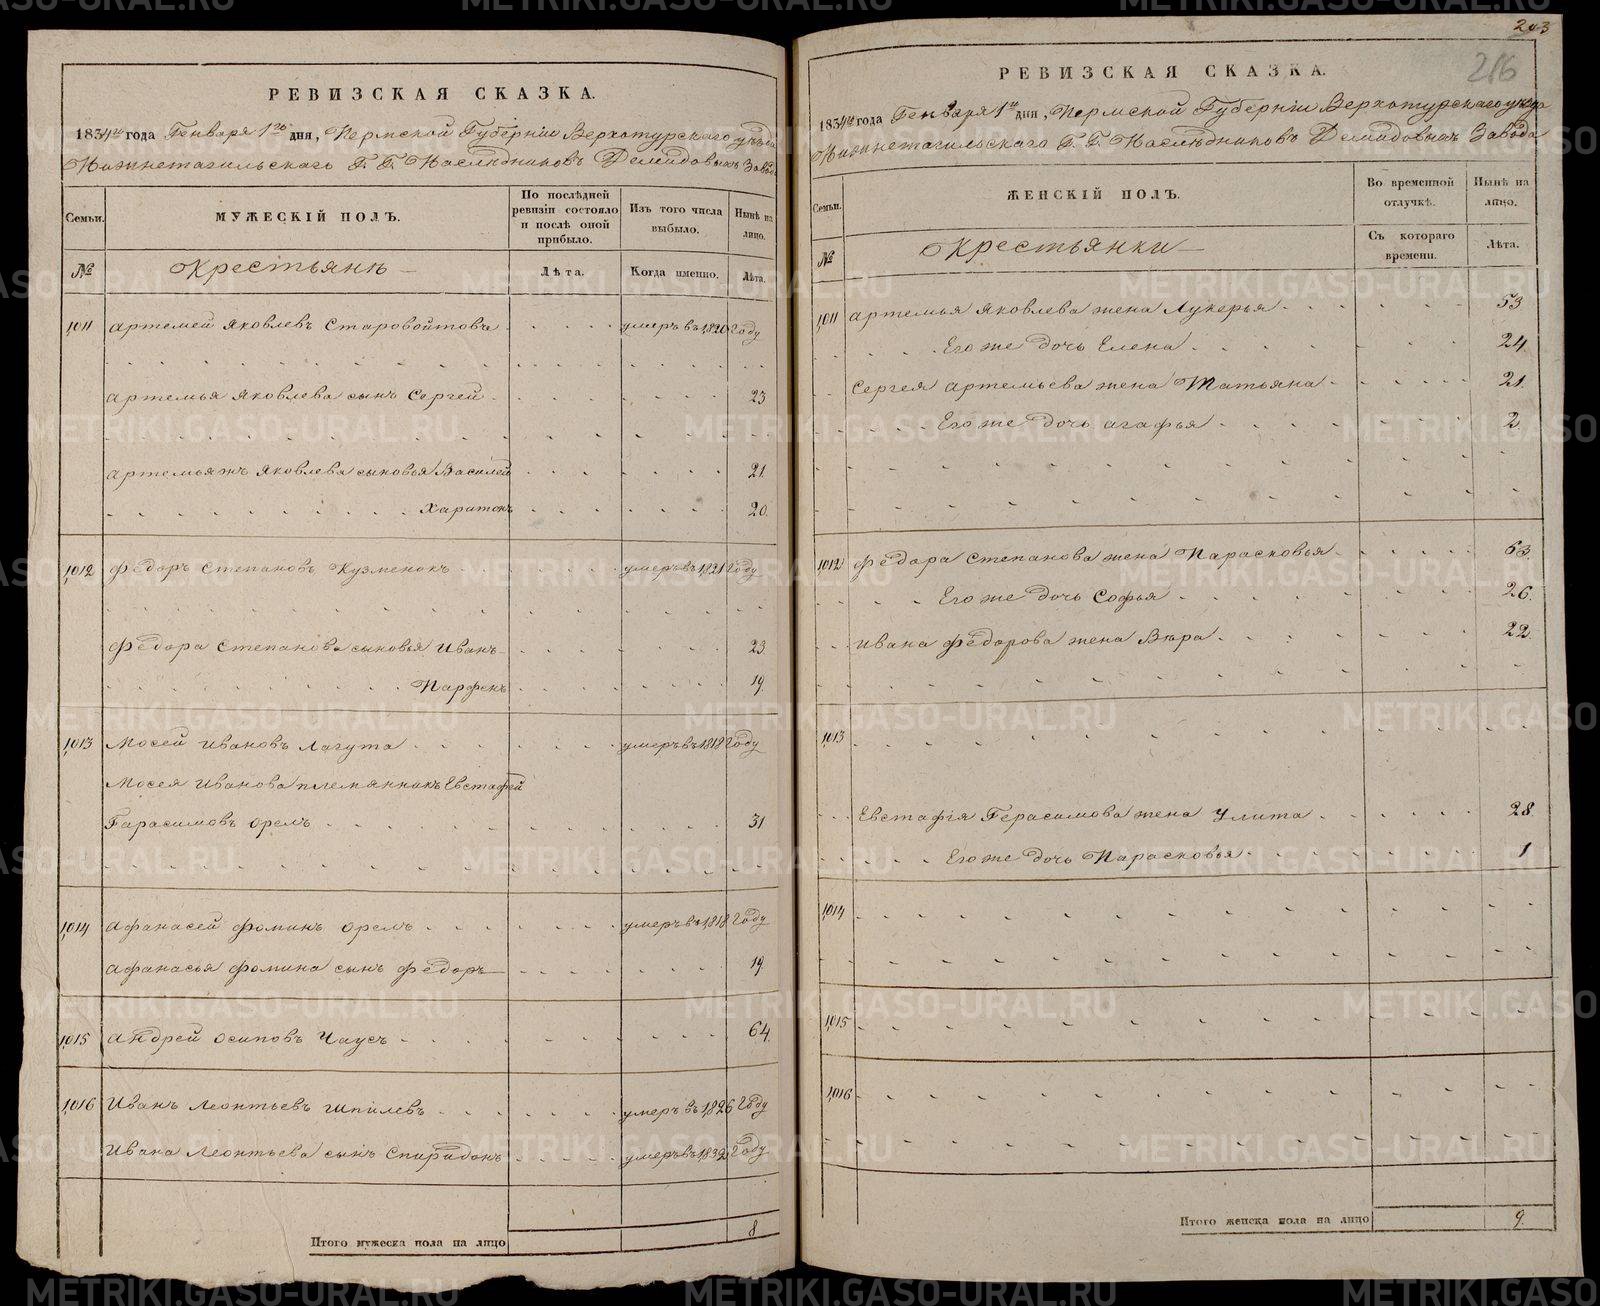 РЕВИЗСКАЯ СКАЗКА.
1834го года Генваря 1го дня, Пермской Губернiи Верхотурскаго уѣзда
Нижнетагильскаго Г. Г. Наслѣдниковъ Демидовыхъ Завода
Семьи.
МУЖЕСКIЙ ПОЛЪ.
По послѣдней ревизiи состояло и послѣ оной прибыло.
Изъ того числа выбыло.
Нынѣ на лицо.
№
Крестьянѣ
Лѣта.
Когда именно.
Лѣта.
1011 Артемей Яковлевъ Старовойтовъ умеръ въ 1820 Году
Артемья Яковлева сынъ Сергей 23
Артемья жъ Яковлева сыновья Василей 21
Харитонъ 20.
1012 Федоръ Степановъ Кузменокъ умеръ въ 1821 Году
Федора Степанова сыновья Иванъ 23
Парфенъ 19.
1013 Мосей Ивановъ Лагута умеръ въ 1818 Году
Мосея Иванова племянникъ Евстафей
Гарасимовъ Орелъ 31
1014 Афанасей Фоминъ Орелъ умеръ въ 1818 Году
Афанасья Фомина сынъ Федоръ 19
1015 Андрей Осиповъ Чаусъ 64.
1016 Иванъ Леонтьевъ Шпилевъ умеръ въ 1826 Году
Ивана Леонтьева сынъ Спиридонъ умеръ въ 1832 Году
Итого мужеска пола на лицо 8
203
216
РЕВИЗСКАЯ СКАЗКА.
1834го года Генваря 1го дня, Пермской Губернiи Верхотурскаго уезда
Нижнетагильскаго Г. Г. Наслѣдниковъ Демидовыхъ Завода
Семьи.
ЖЕНСКIЙ ПОЛЪ.
Во временной отлучкѣ.
Нынѣ на лицо.
№
Крестьянки
Съ котораго времени.
Лѣта.
1011 Артемья Яковлева жена Лукерья 53
Его же дочь Елена 24
Сергея Артемьева жена Татьяна 21
Его же дочь Агафья 2
1012 Федора Степанова жена Парасковья 63.
Его же дочь Софья 26.
Ивана Федорова жена Вѣра 22
1013
Евстафiя Герасимова жена Улита 28
Его же дочь Парасковья 1
1014
1015
1016
Итого женска пола на лицо 9.
METRIKI.GASO-URAL.RU